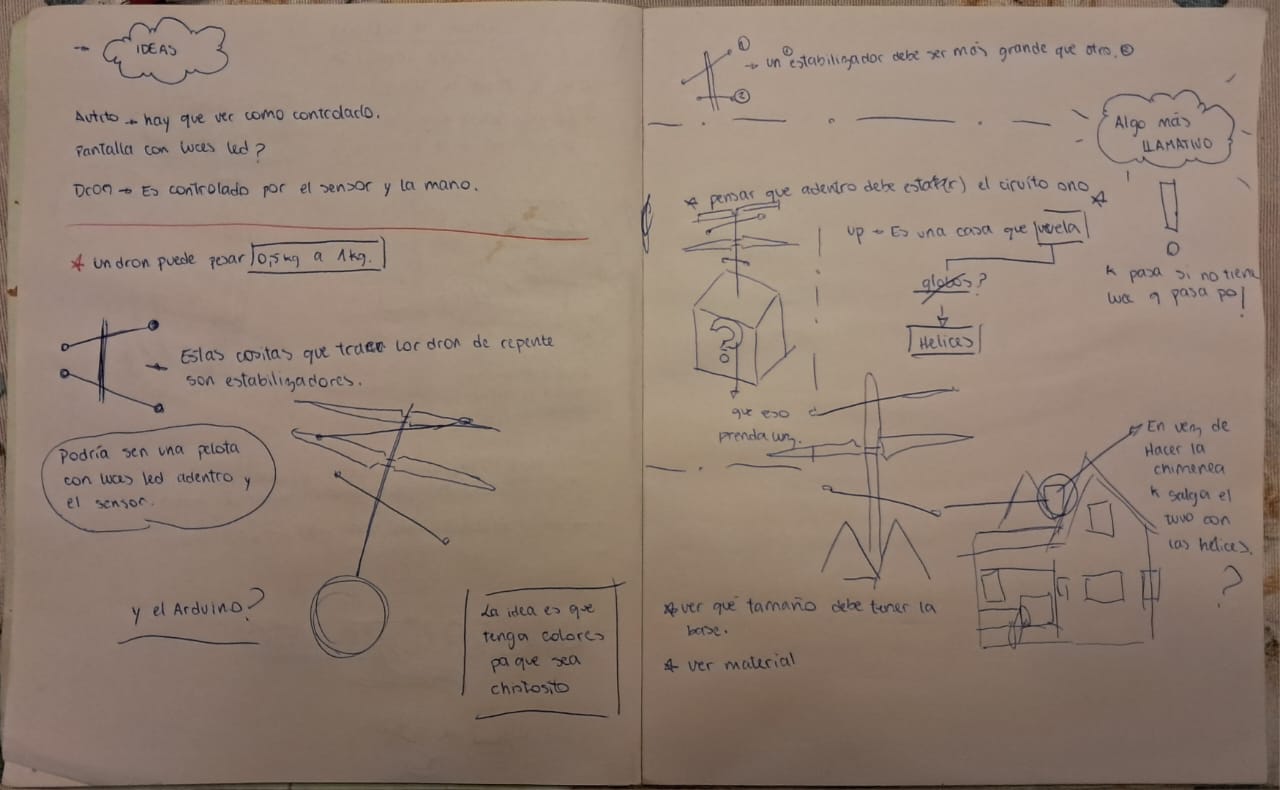 → IDEAS
Autito → hay que ver como controlarlo.
Pantalla con luces led?
Dron → Es controlado por el sensor y la mano.
* un dron puede pesar 0,5 kg a 1 kg.
→ Estas cositas que traen los dron de repente
son estabilizadores.
Podría ser una pelota
con luces led adentro y
el sensor.
y el Arduino?
La idea es que
tenga colores
pa que sea
chistosito
①
→ un ① estabilizador debe ser más grande que otro. ②
②
Algo más
LLAMATIVO
!
* pensar que adentro debe esta(r) el circuito ono *
up → Es una casa que vuela
globos?
Helices
k pasa si no tiene
luz q pasa po!
?
que eso
prenda luz.
En vez de
Hacer la
chimenea
k salga el
tuvo con
las helices.
?
* ver qué tamaño debe tener la
base.
* ver material